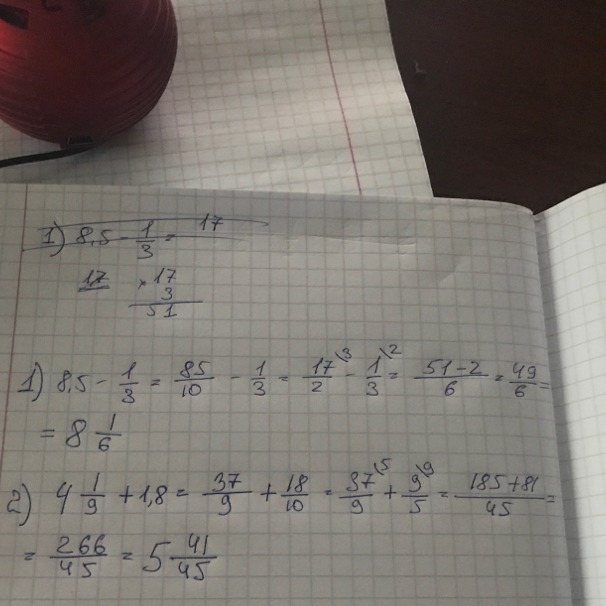 1) 8,5 - 1/3 = 17
17 × 17
3
51
1) 8,5 - 1/3 = 85/10 - 1/3 = 17/2 \3 - 1/3 \2 = 51-2/6 = 49/6 =
= 8 1/6
2) 4 1/9 + 1,8 = 37/9 + 18/10 = 37/9 \5 + 9/5 \9 = 185+81/45 =
= 266/45 = 5 41/45